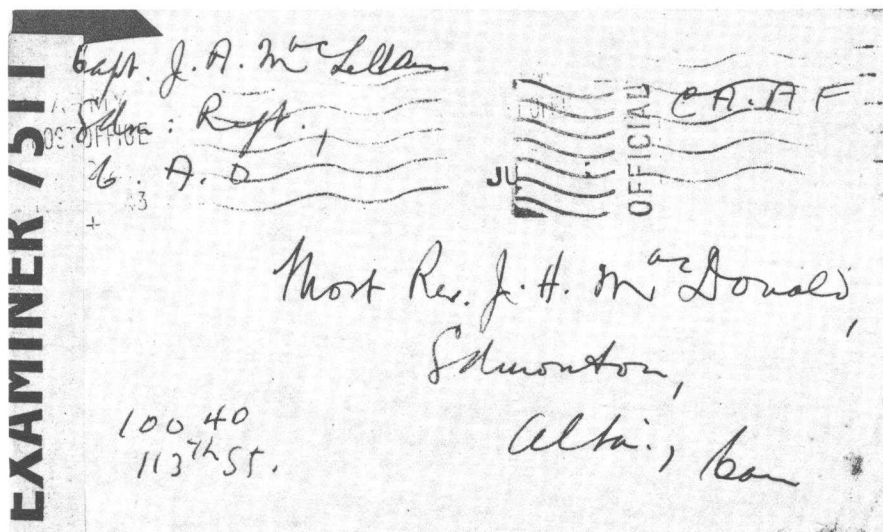 EXAMINER 7511
Capt. J. A. MacLellan
Edm: Regt.,
C. A. O
POST OFFICE
3
JU
OFFICIAL
C A. A F
Most Rev. J. H. MacDonald,
Edmonton,
Alta., Can
100 40
113th St.